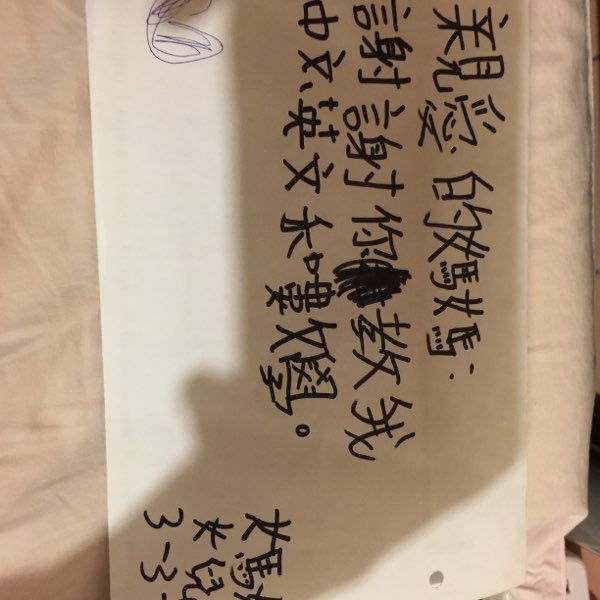 親愛的媽媽:
謝謝你教我
中文、英文和數學。
媽
女兒
3-3-